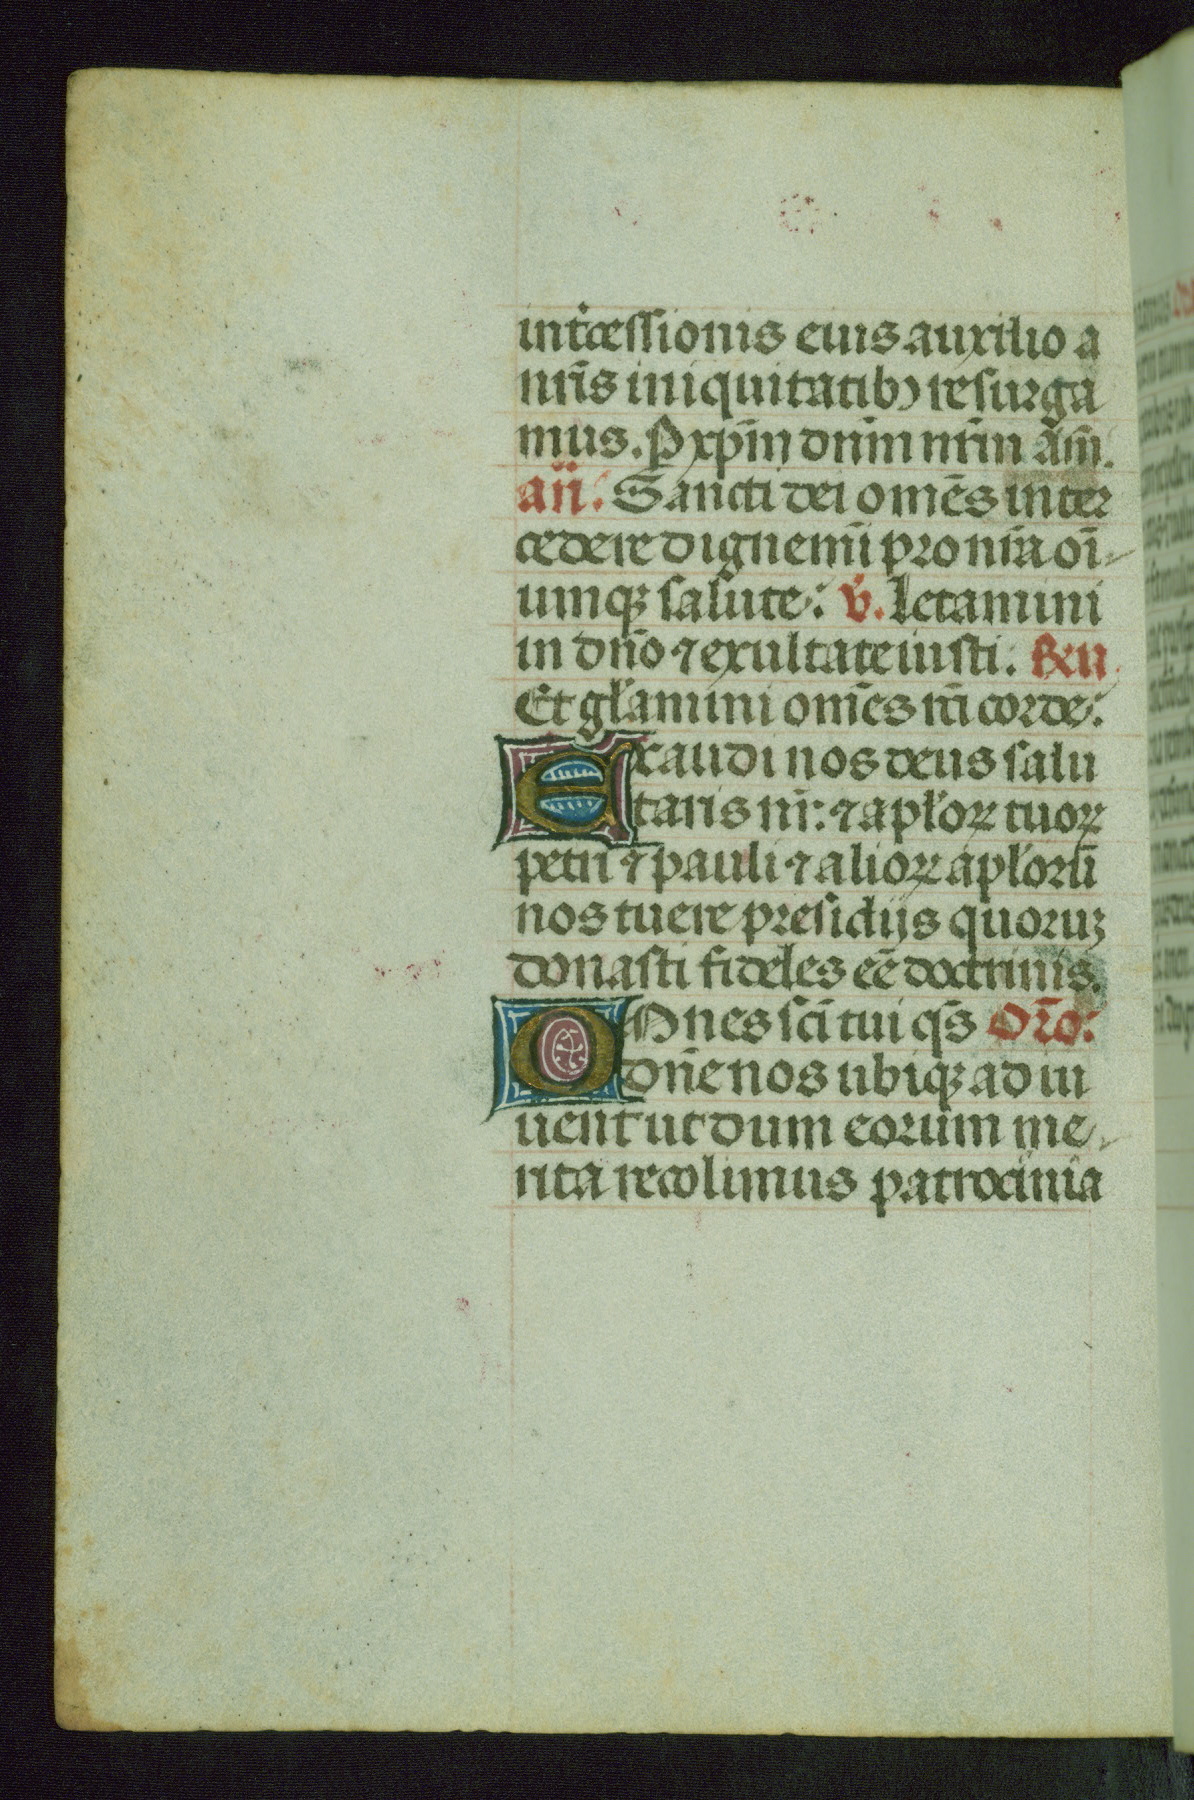 int̉cessionis eius auxilio a
nr̄is iniquitatibꝫ resurga
mus. P xp̄m dn̄m nr̄m am̄.
añ. Sancti dei om̄es inter
cedere dignemī pro nr̄a oī
umqꝫ salute. v̉. letamini
in dn̄o ⁊ exultate iusti. Ren
Et gl̄amini om̄es rc̄ti corde.
Exaudi nos deus salu
taris nr̄. ⁊ apl̄oꝝ tuoꝝ
petri ⁊ pauli ⁊ alioꝝ apl̄orū
nos tuere presidijs quoruꝫ
donasti fideles eē doctrinis.
Omnes sc̄i tui qs̄ Or̄o.
dn̄e nos ubiqꝫ adiu
uent ut dum eorum me
rita recolimus patrocinia